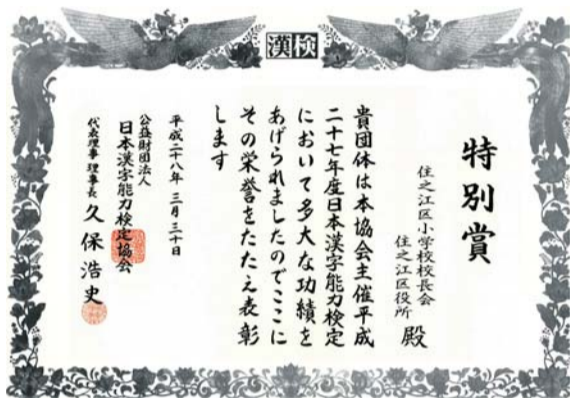 漢検
特別賞
住之江区小学校校長会
住之江区役所 殿
貴団体は本協会主催平成
二十七年度日本漢字能力検定
において多大な功績を
あげられましたのでここに
その栄誉をたたえ表彰
します
平成二十八年 三月 三十日
公益財団法人
日本漢字能力検定協会
代表理事 理事長 久保浩史